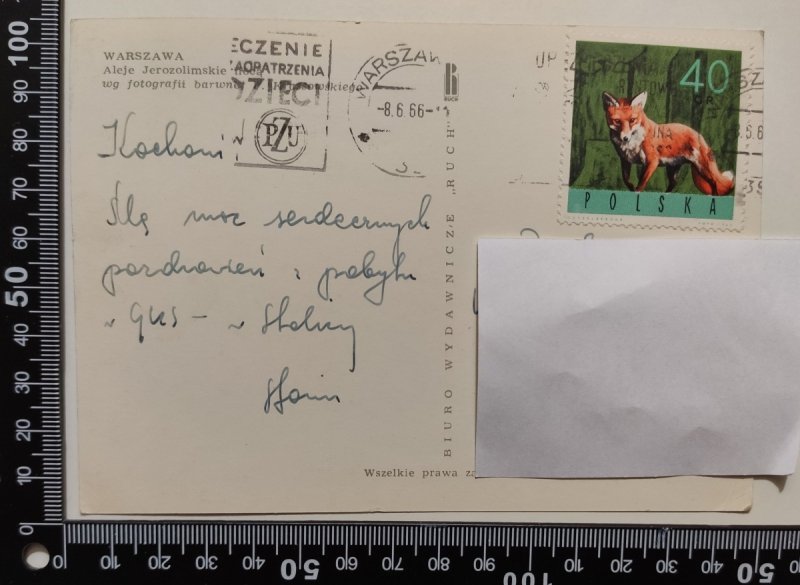 WARSZAWA
Aleje Jerozolimskie nocą
wg fotografii barwnej
ECZENIE
ZAOPATRZENIA
DZIECI
PZU
WARSZAWA
-8.6.66-
RUCH
40
GR
POLSKA
Kochani
Ślę moc serdecznych
pozdrowień z pobytu
w GKS - w Stolicy
BIURO WYDAWNICZE „RUCH"
Wszelkie prawa za
0 10 20 30 40 50 60 70 80 90 100
0 10 20 30 40 50 60 70 80 90 100 10 20 30 40 50